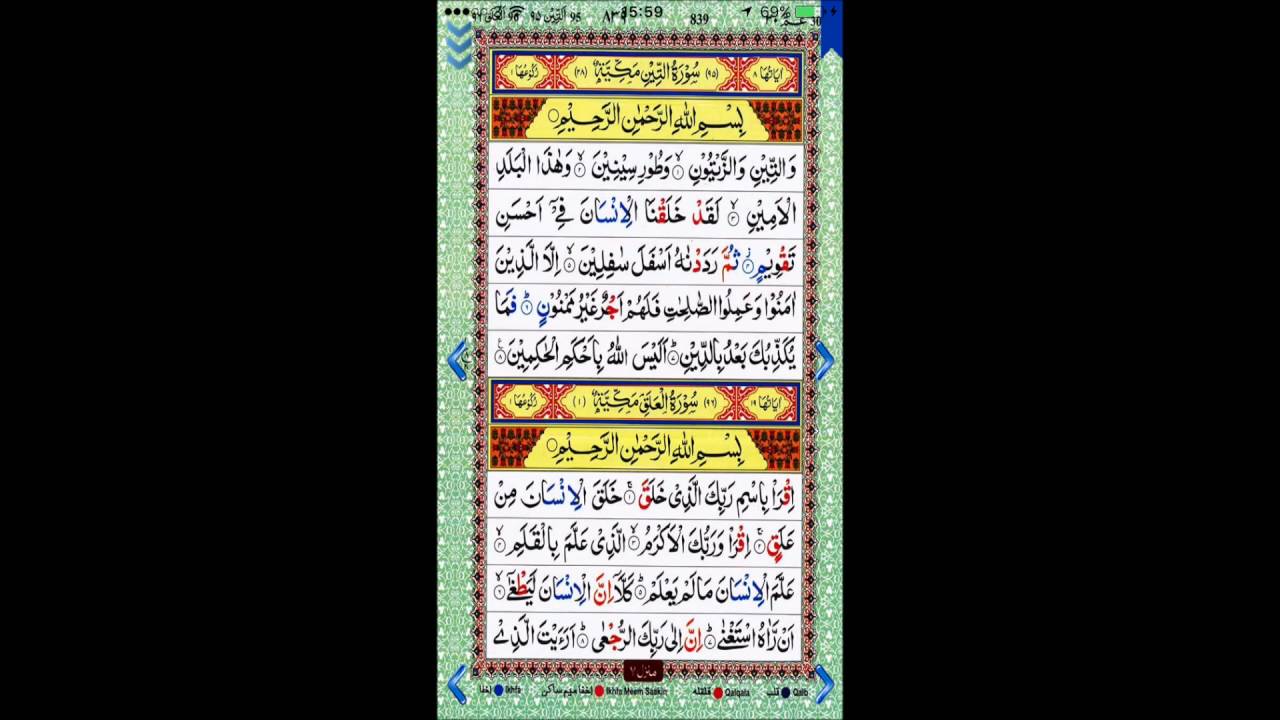 15:59 69%
95 التين ٩٥ 839
اٰيَاتُهَا ٨ (٩٥) سُوْرَةُ التِّيْنِ مَكِّيَّةٌ (٢٨) رُكُوْعُهَا ١
بِسْمِ اللّٰهِ الرَّحْمٰنِ الرَّحِيْمِ
وَالتِّيْنِ وَالزَّيْتُوْنِ ۙ﴿۱﴾ وَطُوْرِ سِيْنِيْنَ ۙ﴿۲﴾ وَهٰذَا الْبَلَدِ
الْاَمِيْنِ ۙ﴿۳﴾ لَقَدْ خَلَقْنَا الْاِنْسَانَ فِيْۤ اَحْسَنِ
تَقْوِيْمٍ ﴿۴﴾ ثُمَّ رَدَدْنٰهُ اَسْفَلَ سٰفِلِيْنَ ۙ﴿۵﴾ اِلَّا الَّذِيْنَ
اٰمَنُوْا وَعَمِلُوا الصّٰلِحٰتِ فَلَهُمْ اَجْرٌ غَيْرُ مَمْنُوْنٍ ؕ﴿۶﴾ فَمَا
يُكَذِّبُكَ بَعْدُ بِالدِّيْنِ ؕ﴿۷﴾ اَلَيْسَ اللّٰهُ بِاَحْكَمِ الْحٰكِمِيْنَ ﴿۸﴾
اٰيَاتُهَا ١٩ (٩٦) سُوْرَةُ الْعَلَقِ مَكِّيَّةٌ (١) رُكُوْعُهَا ١
بِسْمِ اللّٰهِ الرَّحْمٰنِ الرَّحِيْمِ
اِقْرَاْ بِاسْمِ رَبِّكَ الَّذِيْ خَلَقَ ۚ﴿۱﴾ خَلَقَ الْاِنْسَانَ مِنْ
عَلَقٍ ۚ﴿۲﴾ اِقْرَاْ وَرَبُّكَ الْاَكْرَمُ ۙ﴿۳﴾ الَّذِيْ عَلَّمَ بِالْقَلَمِ ۙ﴿۴﴾
عَلَّمَ الْاِنْسَانَ مَا لَمْ يَعْلَمْ ؕ﴿۵﴾ كَلَّاۤ اِنَّ الْاِنْسَانَ لَيَطْغٰۤى ۙ﴿۶﴾
اَنْ رَّاٰهُ اسْتَغْنٰى ؕ﴿۷﴾ اِنَّ اِلٰى رَبِّكَ الرُّجْعٰى ؕ﴿۸﴾ اَرَءَيْتَ الَّذِيْ
منزل ٧
اِخفا Ikhfa اِخفا ميم ساكن Ikhfa Meem Saakin قلقله Qalqala قلب Qalb